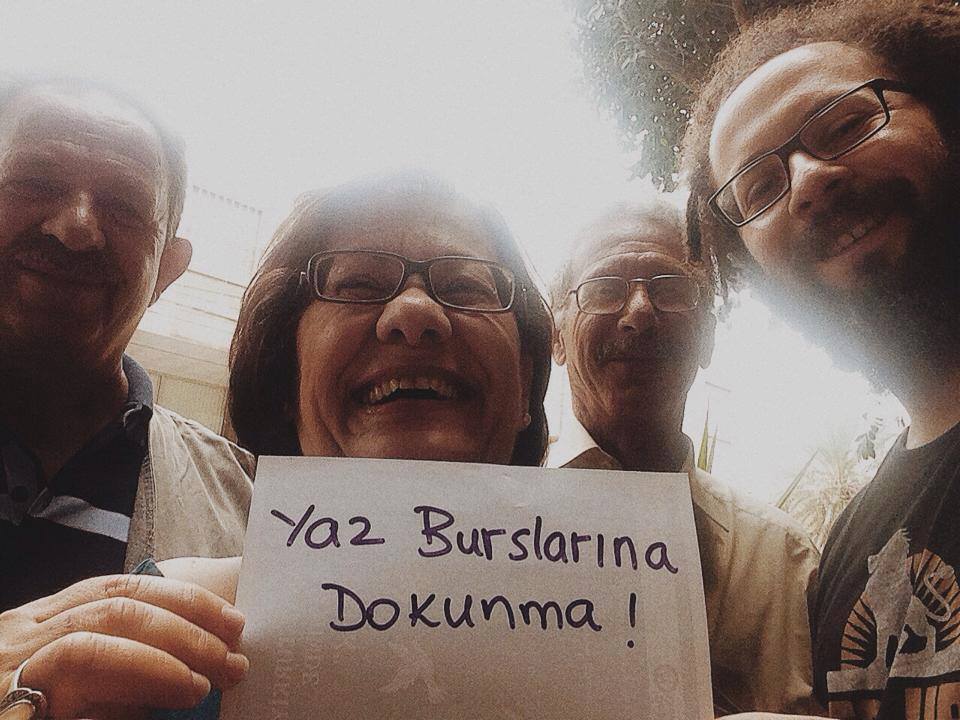 Yaz Burslarına
Dokunma!